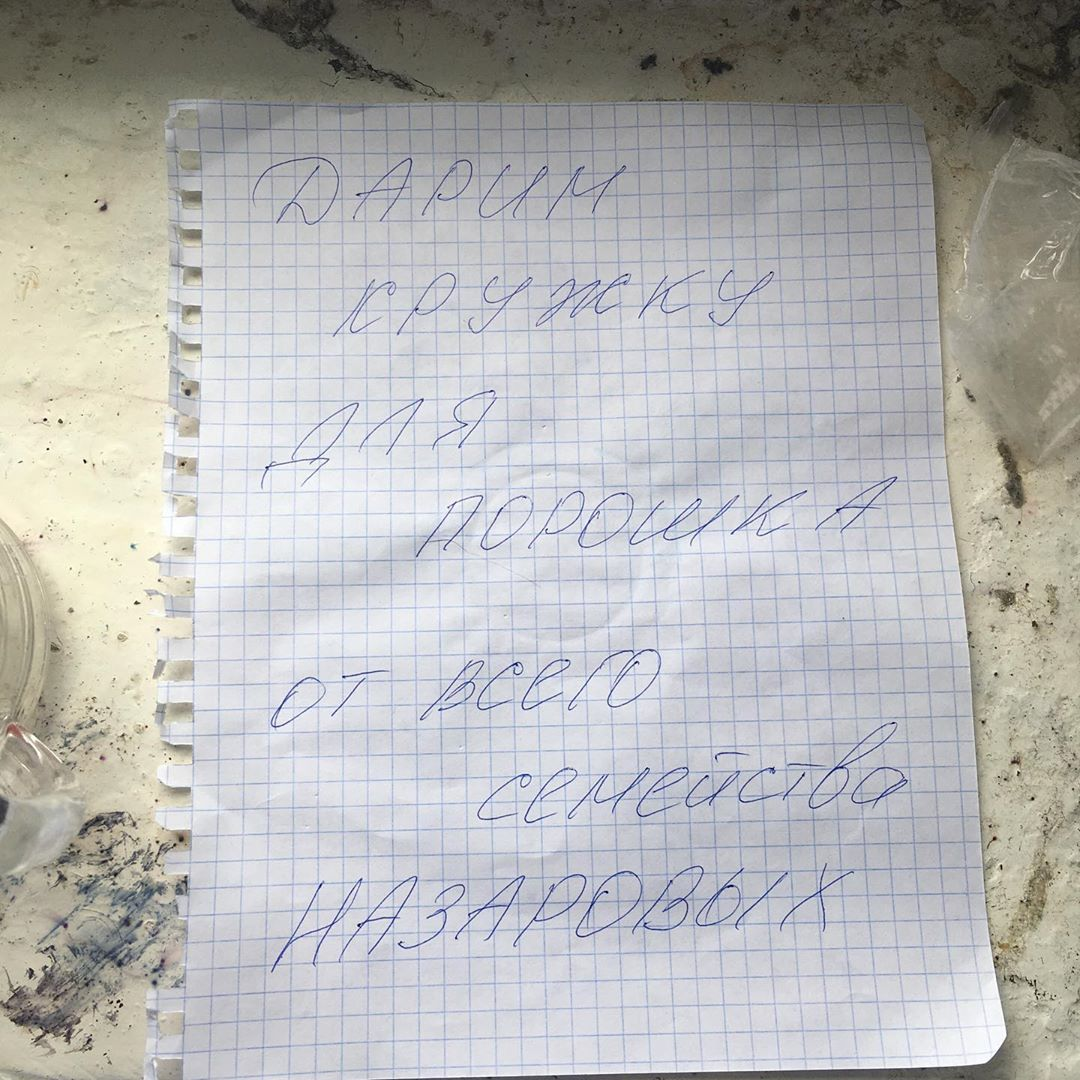 ДАРИМ
КРУЖКУ
ДЛЯ
ПОРОШКА
ОТ ВСЕГО
семейства
НАЗАРОВЫХ